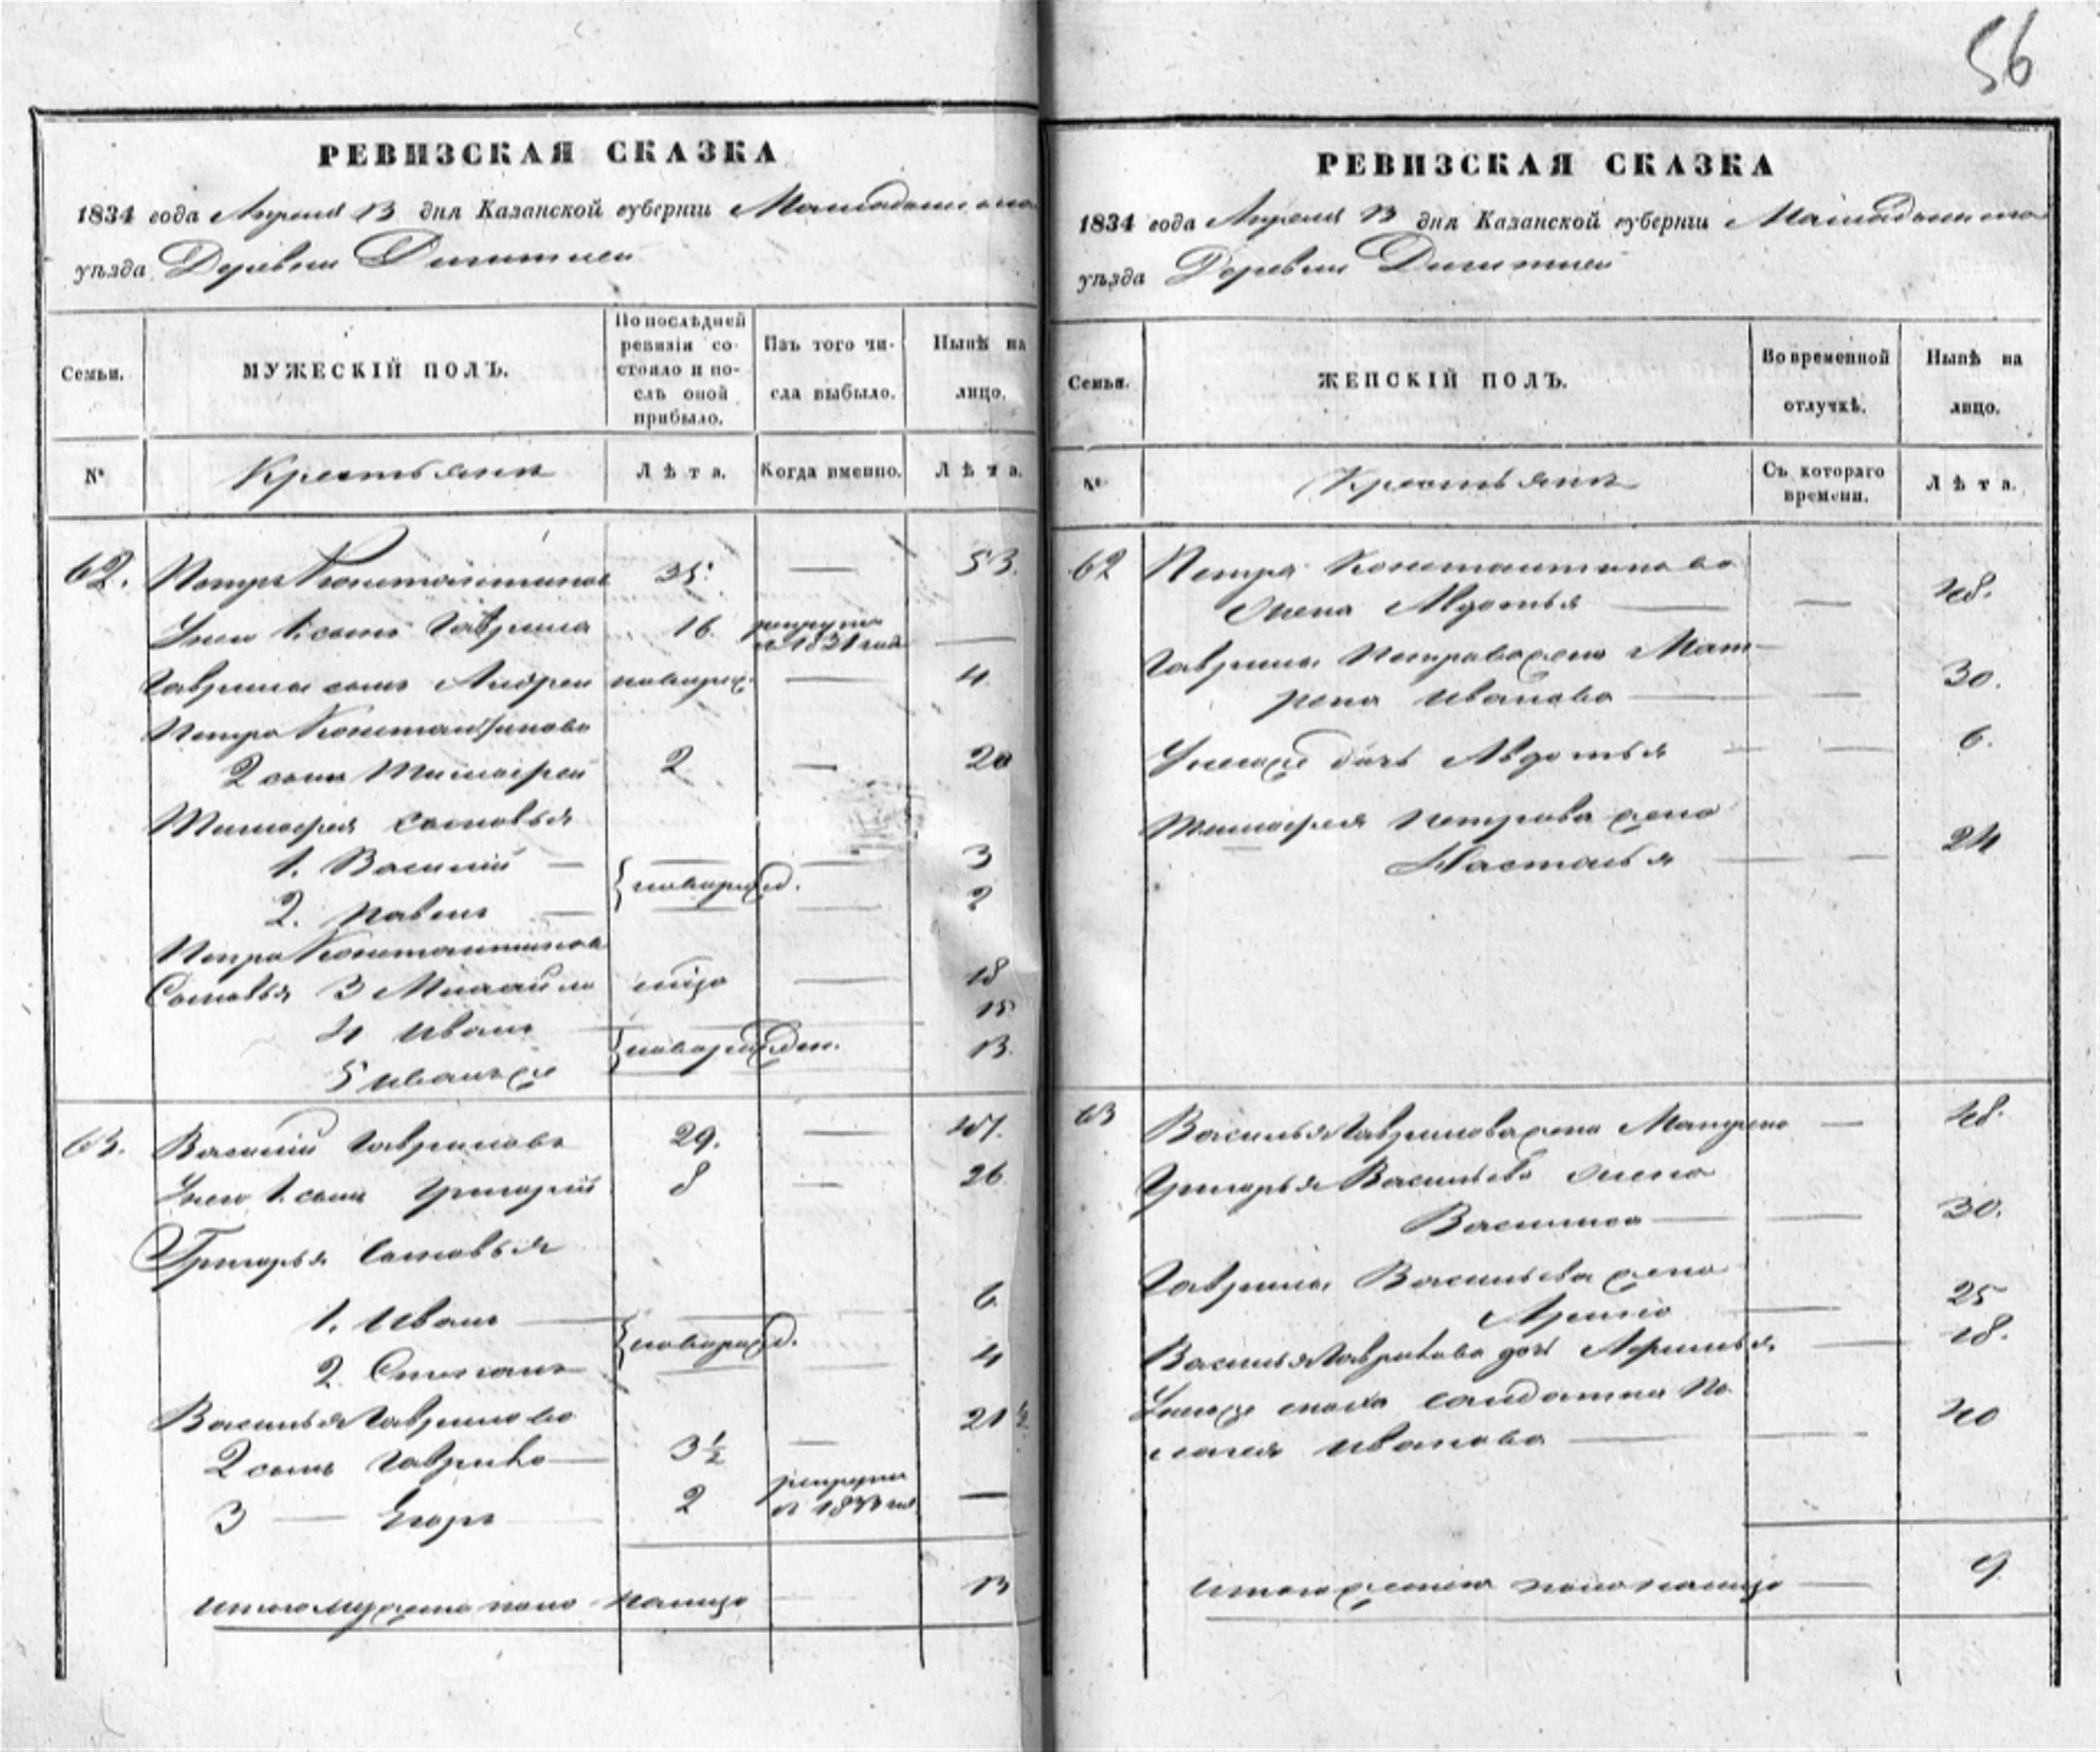 56
РЕВИЗСКАЯ СКАЗКА
1834 года Апреля 13 дня Казанской губернии Мамадышскаго
уѣзда Деревни
Семьи.
МУЖЕСКІЙ ПОЛЪ.
По послѣдней
ревизіи со-
стояло и по-
слѣ оной
прибыло.
Изъ того чи-
сла выбыло.
Нынѣ на
лицо.
№
Крестьяне
Лѣта.
Когда именно.
Лѣта.
62. Петръ Константиновъ 35. — 53.
Ево 1. сынъ Гаврила 16 рекрутъ
въ 1831 год —
Гаврилы сынъ Андрей новорож. — 4
Петра Константинова
2 сынъ Тимофей 2 — 20
Тимофея сыновья
1. Василий — 3
новорожд.
2. Павелъ — 2
Петра Константинова
Сыновья 3 Михайло — 18
4 Иванъ 15
новорожден.
5 Иванъ же 13.
63. Василий Гавриловъ 29. — 47.
Ево 1. сынъ Григорий 8 — 26
Григорья Сыновья
1. Иванъ — 6
новорожд.
2. Степанъ 4
Василья Гаврилова
2 сынъ Гаврило — 3½ — 21½
3 — Егоръ 2 рекрутъ
въ 1833 го —
итого мужеска полу налицо 13
РЕВИЗСКАЯ СКАЗКА
1834 года Апреля 13 дня Казанской губернии Мамадышскаго
уѣзда Деревни
Семьи.
ЖЕНСКІЙ ПОЛЪ.
Во временной
отлучкѣ.
Нынѣ на
лицо.
№
Крестьяне
Съ котораго
времени.
Лѣта.
62 Петра Константинова
жена Авдотья — — 48.
Гаврилы Петрова жена Мат-
рена Иванова — — 30.
Унего же дочь Авдотья — 6.
Тимофея Петрова жена
Настасья — — 24
63 Василья Гаврилова жена Матрена — 48.
Григорья Васильева жена
Василиса — — 30.
Гаврилы Васильева жена
Арина — 25
Василья Гаврилова дочь Афимья — 18.
Унего же сноха солдатка Пе
лагея Иванова — — 40
итого женска полу налицо — 9